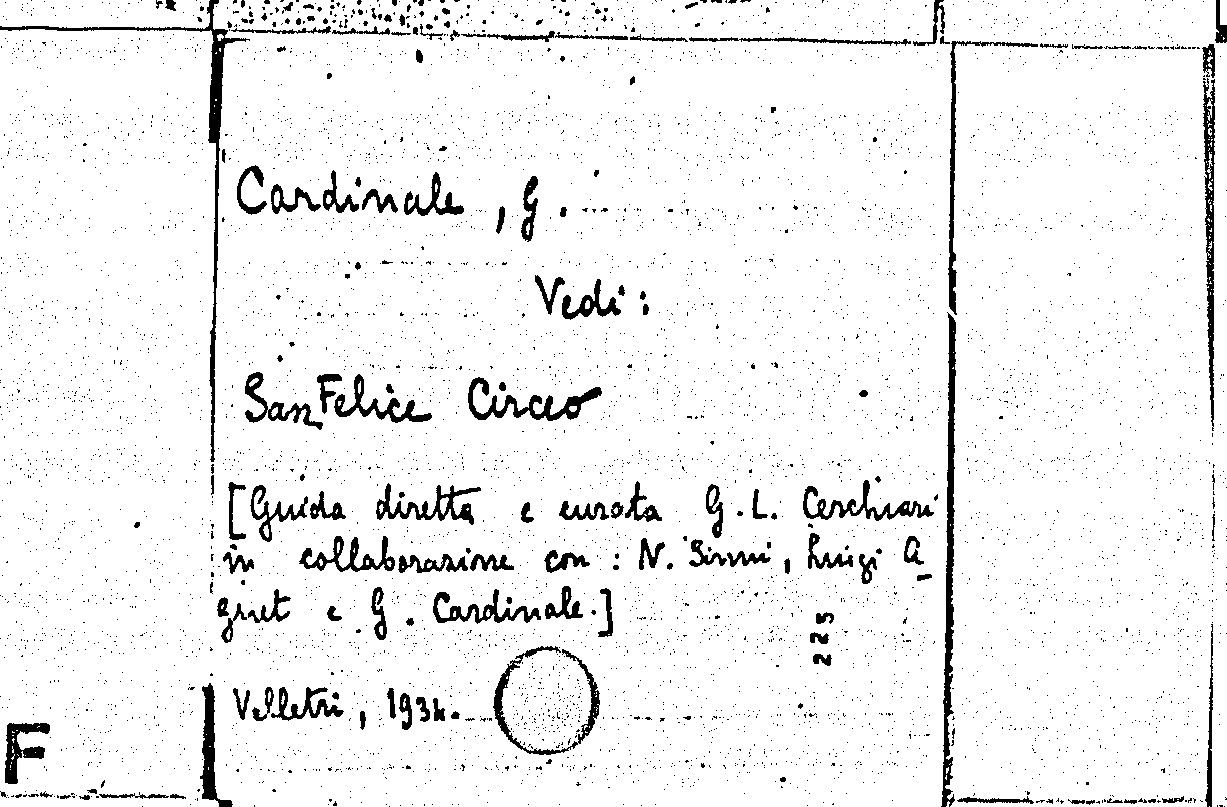 Cardinale, G.
Vedi:
San Felice Circeo
[Guida diretta e curata G.L. Cerchiari
in collaborazione con : N. Simmi, Luigi A_
griet e G. Cardinale.]
225
Velletri, 1934.
F